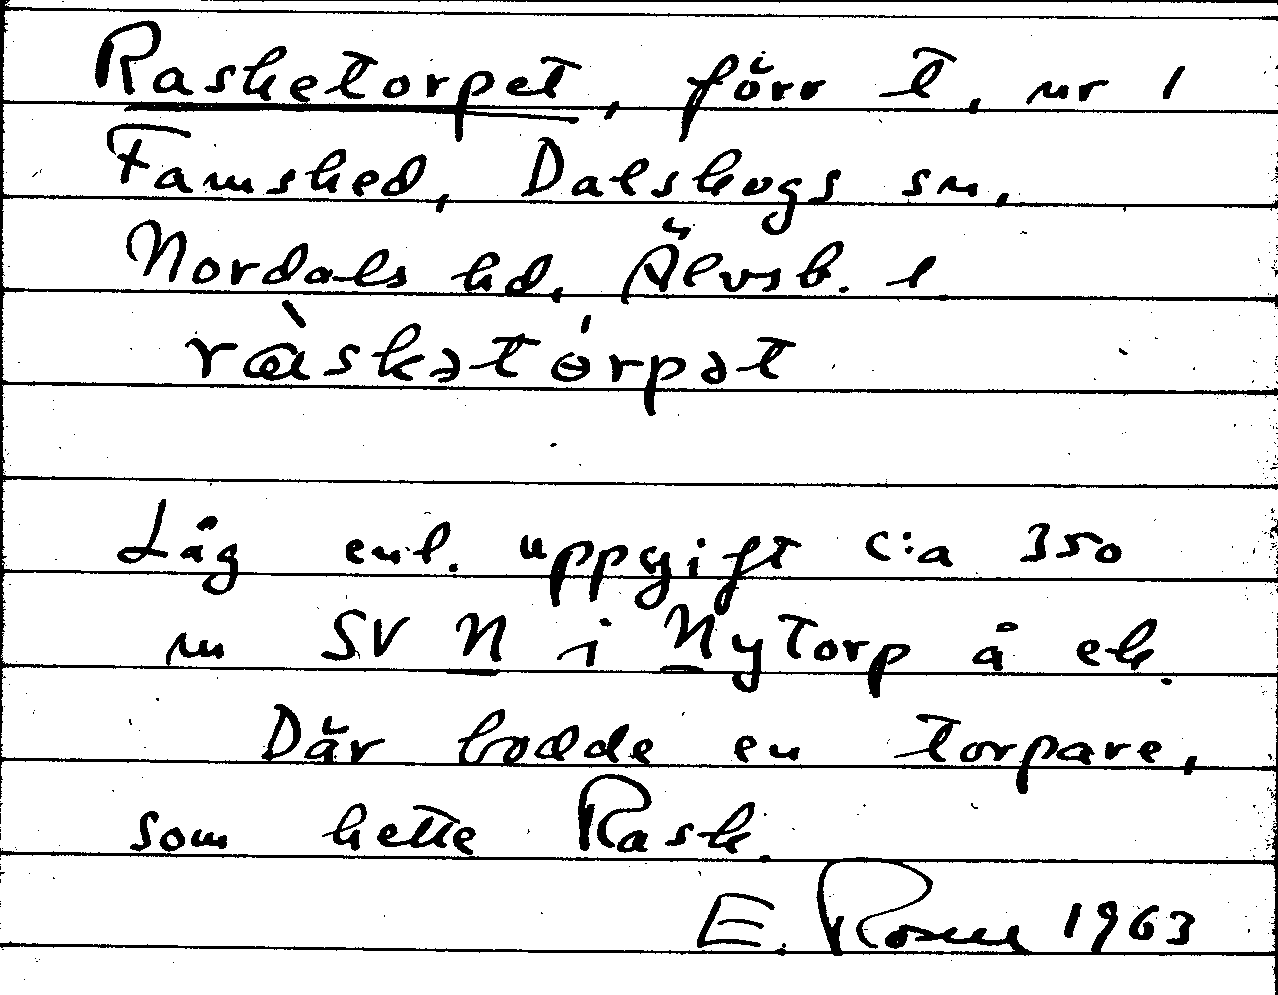 Rasketorpet, förr t, nr 1
Famshed, Dalskogs sn,
Nordals hd, Älvsb. l
ràskətórpət
Låg enl. uppgift c:a 350
m SV N i Nytorp å ek.
Där bodde en torpare,
som hette Rask.
E. Rosell 1963